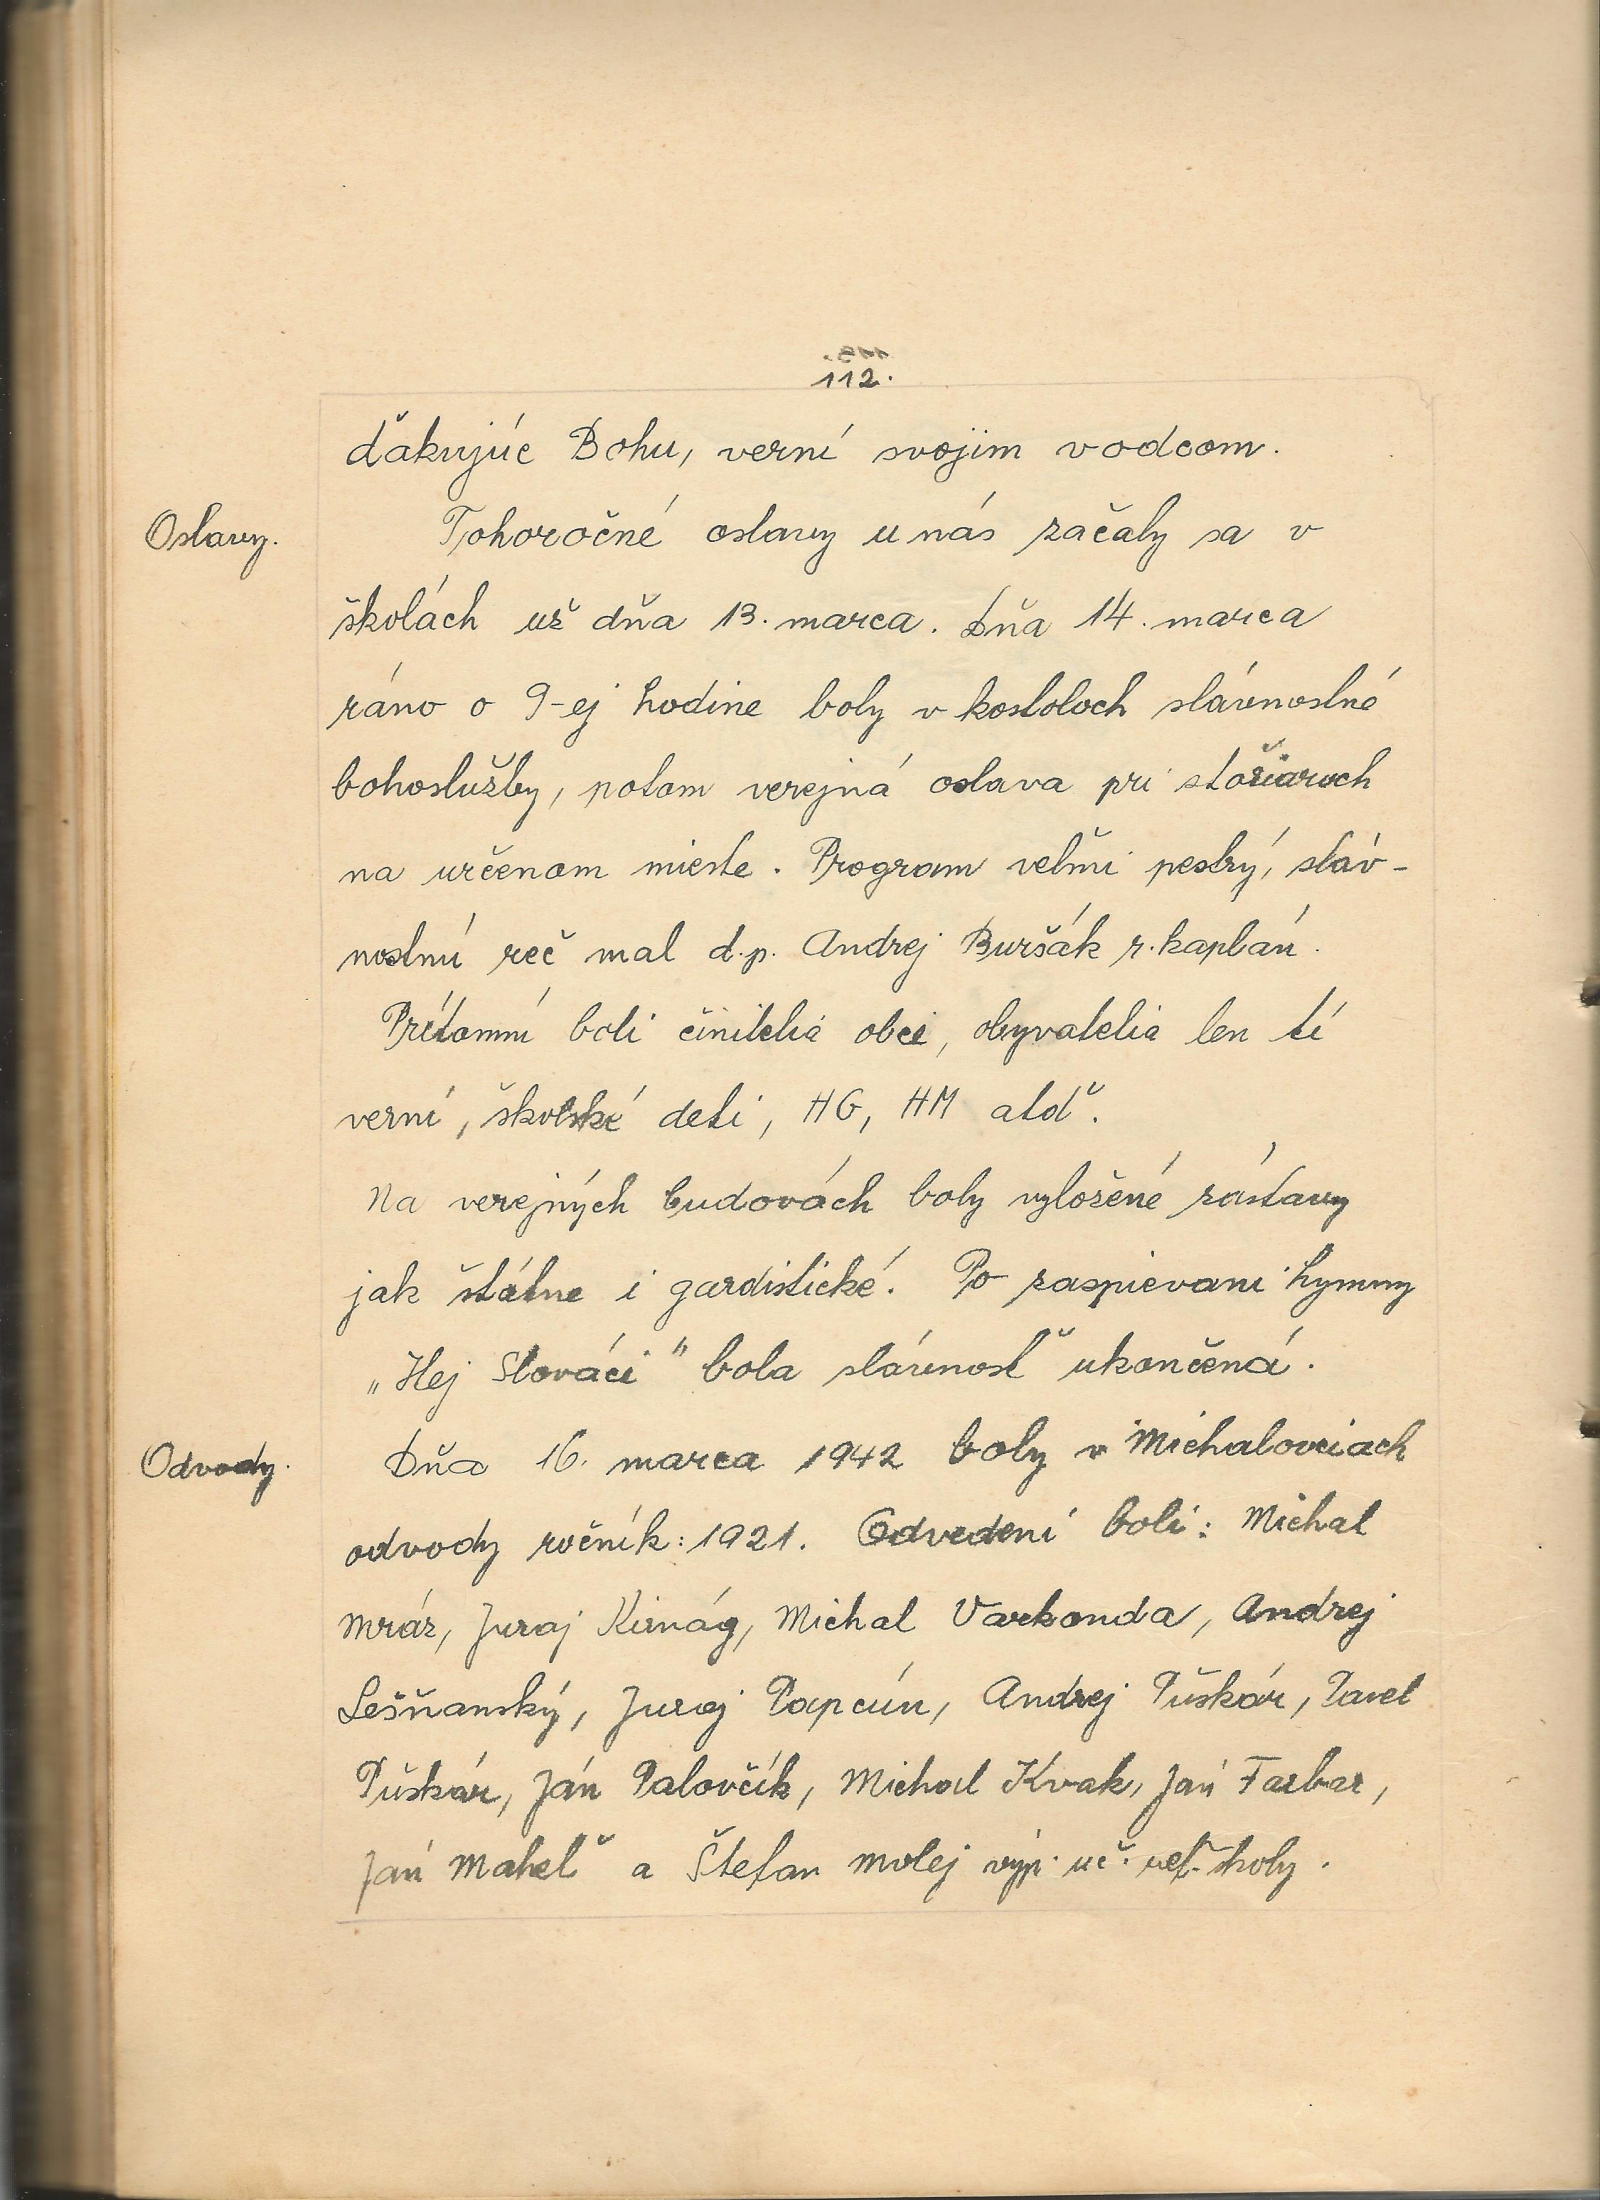 112.
ďakujúc Bohu, verní svojim vodcom.
Oslavy.
Tohoročné oslavy u nás začaly sa v
školách už dňa 13. marca. Dňa 14. marca
ráno o 9-ej hodine boly v kostoloch slávnostné
bohoslužby, potom verejná oslava pri stožiaroch
na určenom mieste. Program veľmi pestrý, sláv-
nostnú reč mal d.p. Andrej Buršák r. kaplán.
Prítomní boli činitelia obci, obyvatelia len tí
verní, školské deti, HG, HM atď.
Na verejných budovách boly vyložené zástavy
jak štátne i gardistické. Po zaspievaní hymny
„Hej Slováci" bola slávnosť ukončená.
Odvody.
Dňa 16. marca 1942 boly v Michalovciach
odvody ročník: 1921. Odvedení boli: Michal
Mráz, Juraj Kirnág, Michal Varkonda, Andrej
Lešňanský, Juraj Papcún, Andrej Puškár, Pavel
Puškár, Ján Palovčík, Michal Kvak, Ján Farbar,
Ján Maheľ a Štefan Molej výp. uč. školy.